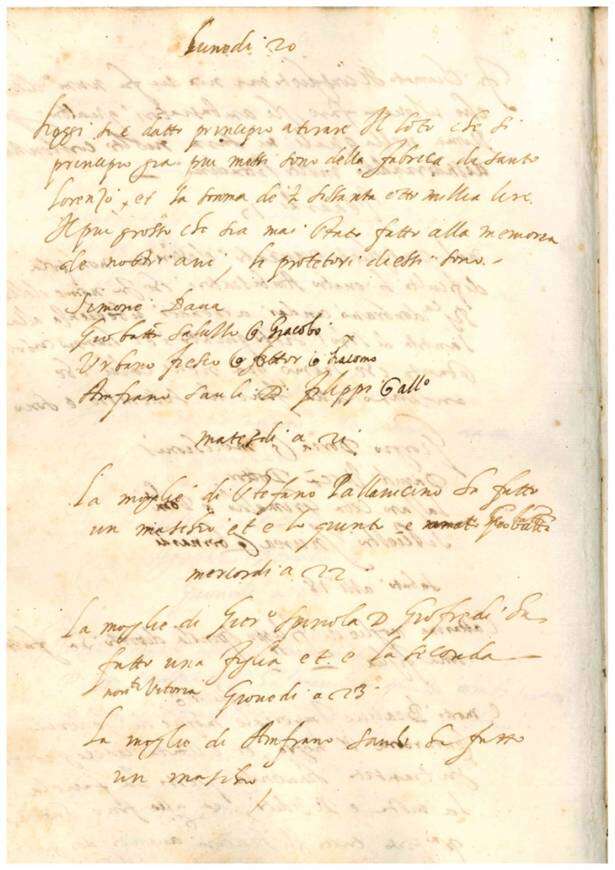 Lunedi 20
Hoggi si è datto principio a tirare Il loto che si
principio gia piu messi sono della fabrica di santo
Lorenzo, et la somma de £ sessanta otto millia lire.
Il piu grosso che sia mai stato fatto alla memoria
de nostri ani, li protetori di essi sono.
Simone Daua
Gio batta Saluzzo q Giacobo
Urbano fiesco q hettor q Giacomo
Anfrano Sauli D Filippi Gallo
martedi a 21
La moglie di Stefano Pallauicino ha fatto
un maschio et e lo quinto e Gio batta
mercordi a 22
La moglie di Gier.o Spinola D Giofredi ha
fatto una figlia et e la seconda
Vitoria Giouedi a 23
La moglie di Anfrano Sauli ha fatto
un maschio